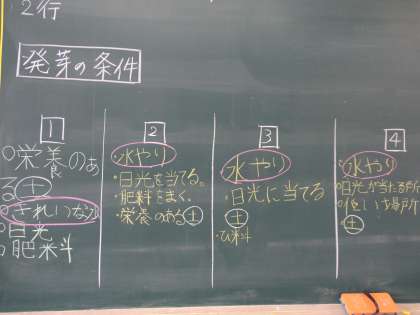 2行
発芽の条件
1
○栄養のあ
る土
○きれいな水
○日光
○肥料
2
・水やり
・日光を当てる。
・肥料をまく。
・栄養のある土
3
・水やり
・日光に当てる
・土
・ひ料
4
○水やり
○日光が当たる所
○土